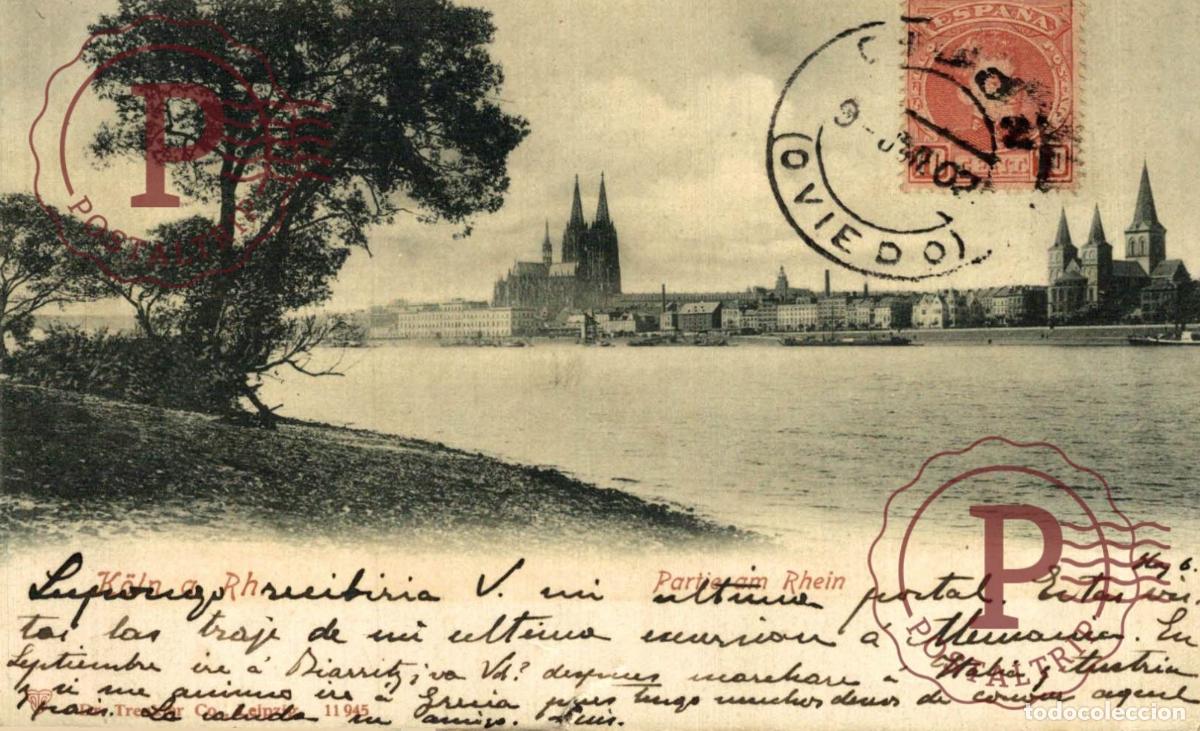 P
POSTALTRIP
ESPAÑA
OVIEDO
Köln a. Rh.
Partie am Rhein
Hoy 6.
Supongo recibiria V. mi ultima postal. Estas vis
tas las traje de mi ultima excursion á Alemania. En
Septiembre ire á Biarritz; va Vd? despues marchare á Italia y Austria
y si me animo ire á Grecia pues tengo muchos deseos de conocer aquel
pais. Le saluda su amigo. Luis.
Dr. Trenkler Co., Leipzig. 11945
P
POSTALTRIP
todocoleccion